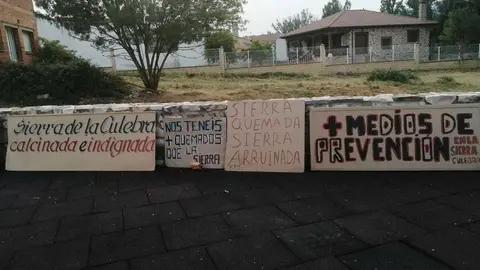 Sierra de la Culebra
calcinada e indignada
NOS TENEIS
+ QUEMADOS
QUE LA
SIERRA
SIERRA
QUEMADA
SIERRA
ARRUINADA
+ MEDIOS DE
PREVENCION
EN LA
SIERRA
CULEBRA